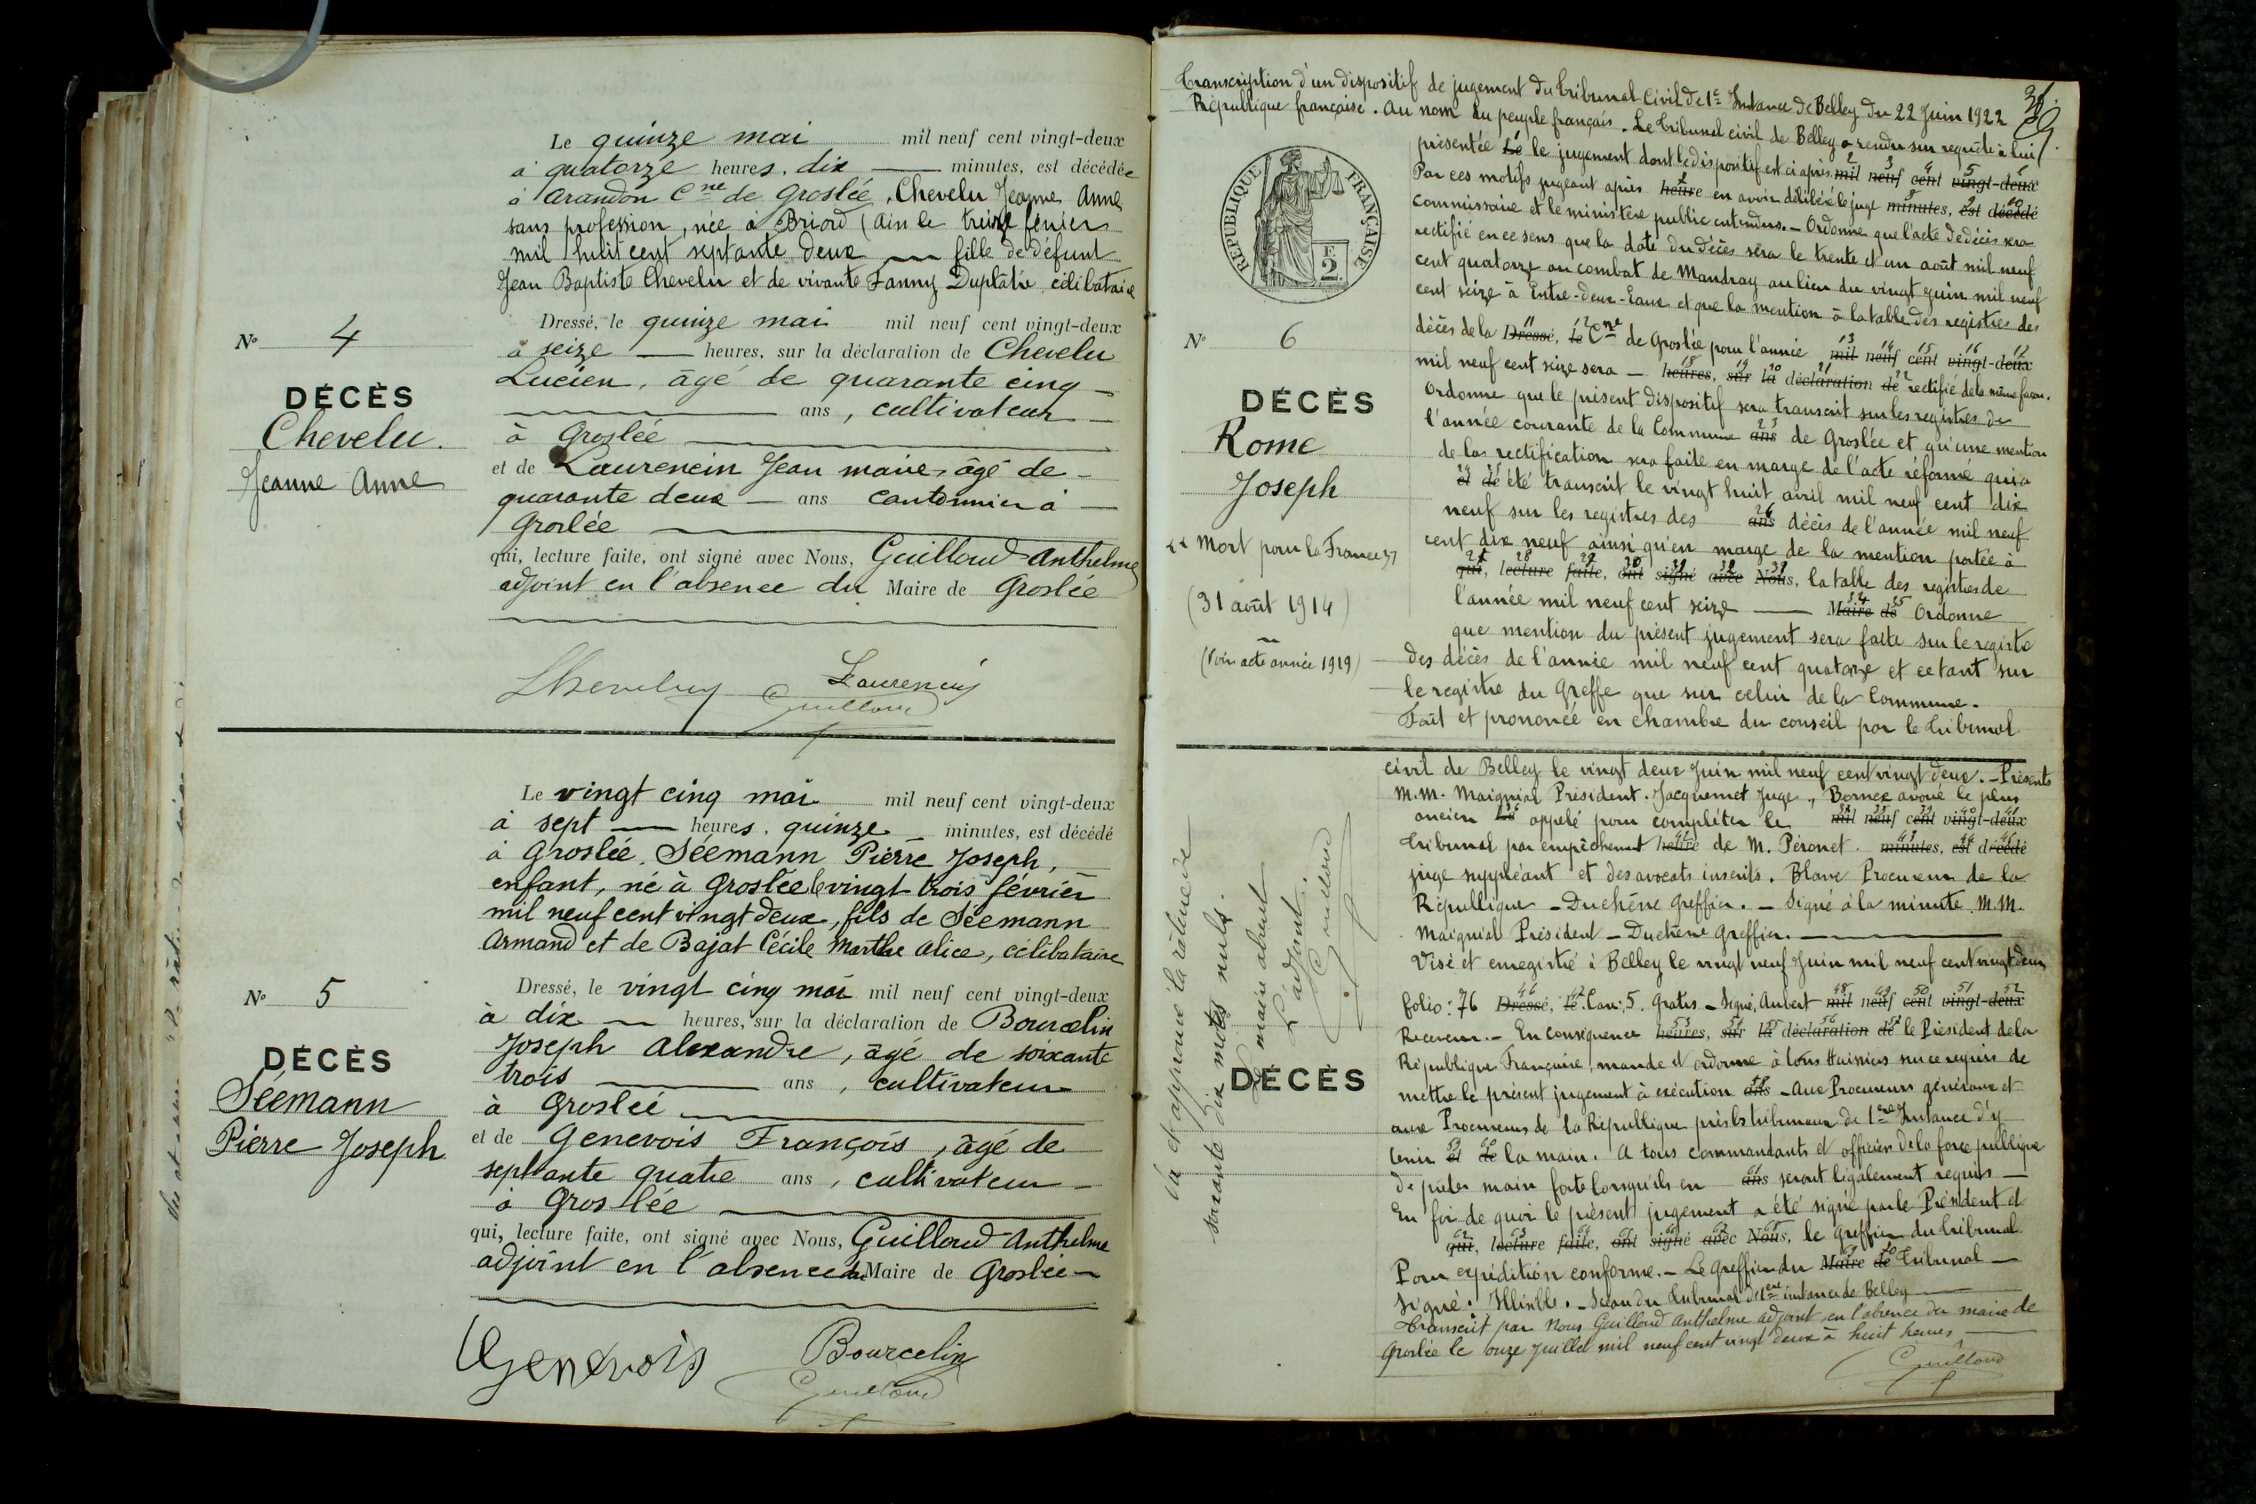 Le quinze mai mil neuf cent vingt-deux
à quatorze heures, dix minutes, est décédée
à Arandon Cne de Groslée, Chevelu Jeanne Anne
sans profession, née à Briord (Ain le treize février
mil huit cent septante deux fille de défunt
Jean Baptiste Chevelu et de vivante Fanny Duplâtre, célibataire
Dressé, le quinze mai mil neuf cent vingt-deux
à seize heures, sur la déclaration de Chevelu
Lucien, âgé de quarante cinq
ans, cultivateur
à Groslée
et de Laurencin Jean marie, âgé de
quarante deux ans cantonnier à
Groslée
qui, lecture faite, ont signé avec Nous, Guilloud Anthelme
adjoint en l'absence du Maire de Groslée
No 4
DÉCÈS
Chevelu.
Jeanne Anne
LChevelu Laurencin
Guilloud
Le vingt cinq mai mil neuf cent vingt-deux
à sept heures, quinze minutes, est décédé
à Groslée, Séemann Pierre Joseph,
enfant, né à Groslée le vingt trois février
mil neuf cent vingt deux, fils de Séemann
Armand et de Bajat Cécile Marthe Alice, célibataire
Dressé, le vingt cinq mai mil neuf cent vingt-deux
à dix heures, sur la déclaration de Bourcelin
Joseph Alexandre, âgé de soixante
trois ans, cultivateur
à Groslée
et de Genevois François, âgé de
septante quatre ans, cultivateur
à Groslée
qui, lecture faite, ont signé avec Nous, Guilloud Anthelme
adjoint en l'absence du Maire de Groslée
No 5
DÉCÈS
Séemann
Pierre Joseph
Genevois Bourcelin
Guilloud
Transcription d'un dispositif de jugement du Tribunal Civil de 1e Instance de Belley du 22 Juin 1922
République française. Au nom du peuple français. Le Tribunal civil de Belley a rendu sur requête à lui
présentée Le le jugement dont le dispositif est ci après. mil neuf cent vingt-deux
Par ces motifs jugeant après heure en avoir délibéré le juge minutes, est décédé
commissaire et le ministère public entendus. - Ordonne que l'acte de décès sera
rectifié en ce sens que la date du décès sera le trente et un août mil neuf
cent quatorze au combat de Mandray au lieu du vingt juin mil neuf
cent seize à Entre-deux-Eaux et que la mention à la table des registres des
décès de la Dressé, le Cne de Groslée pour l'année mil neuf cent vingt-deux
mil neuf cent seize sera heures, sur la déclaration de rectifié de la même façon.
Ordonne que le présent dispositif sera transcrit sur les registres de
l'année courante de la Commune ans de Groslée et qu'une mention
de la rectification sera faite en marge de l'acte réformé qui a
et de été transcrit le vingt huit avril mil neuf cent dix
neuf sur les registres des ans décès de l'année mil neuf
cent dix neuf ainsi qu'en marge de la mention portée à
qui, lecture faite, ont signé avec Nous, la table des registres de
l'année mil neuf cent seize Maire de Ordonne
que mention du présent jugement sera faite sur le registre
des décès de l'année mil neuf cent quatorze et ce tant sur
le registre du Greffe que sur celui de la Commune.
Fait et prononcé en chambre du conseil par le Tribunal
RÉPUBLIQUE FRANÇAISE
2 F
No 6
DÉCÈS
Rome
Joseph
"Mort pour la France"
(31 août 1914)
(Voir acte année 1919)
civil de Belley le vingt deux Juin mil neuf cent vingt deux. - Présents
M.M. Maignial Président. Jacquemet Juge, Bornex avoué le plus
ancien Le appelé pour compléter le mil neuf cent vingt-deux
Tribunal par empêchement heure de M. Péronet. minutes, est décédé
juge suppléant et des avocats inscrits. Blanc Procureur de la
République - Duchêne Greffier. - Signé à la minute. M.M.
Maignial Président - Duchêne Greffier.
Visé et enregistré à Belley le vingt neuf Juin mil neuf cent vingt deux
folio: 76 Dressé, le Case: 5. Gratis - Signé, Aubert mil neuf cent vingt-deux
Receveur. - En conséquence heures, sur la déclaration de le Président de la
République Française, mande et ordonne à tous Huissiers sur ce requis de
mettre le présent jugement à exécution ans - Aux Procureurs généraux et
aux Procureurs de la République près les tribunaux de 1ere Instance d'y
tenir et de la main. A tous commandants et officiers de la force publique
de prêter main forte lorsqu'ils en ans seront légalement requis
En foi de quoi le présent jugement a été signé par le Président et
qui, lecture faite, ont signé avec Nous, le Greffier du Tribunal
Pour expédition conforme. - Le Greffier du Maire de Tribunal
Signé: Illisible. - Sceau du Tribunal de 1ere instance de Belley
Transcrit par Nous Guilloud Anthelme adjoint, en l'absence du maire de
Groslée le onze Juillet mil neuf cent vingt deux à huit heures
Guilloud
DÉCÈS
Vu et approuvé la rature de
soixante dix mots nuls.
Le maire absent
L'adjoint.
Guilloud